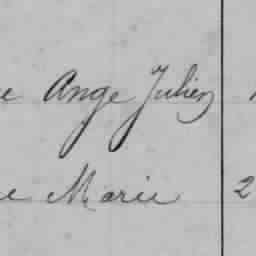 e Ange Julien
e Marie 2